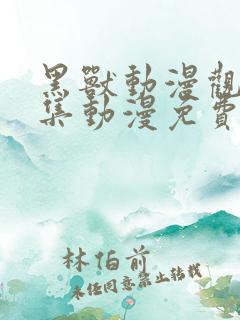 黑獸動漫觀
集動漫免費
林伯前
未经同意禁止转载